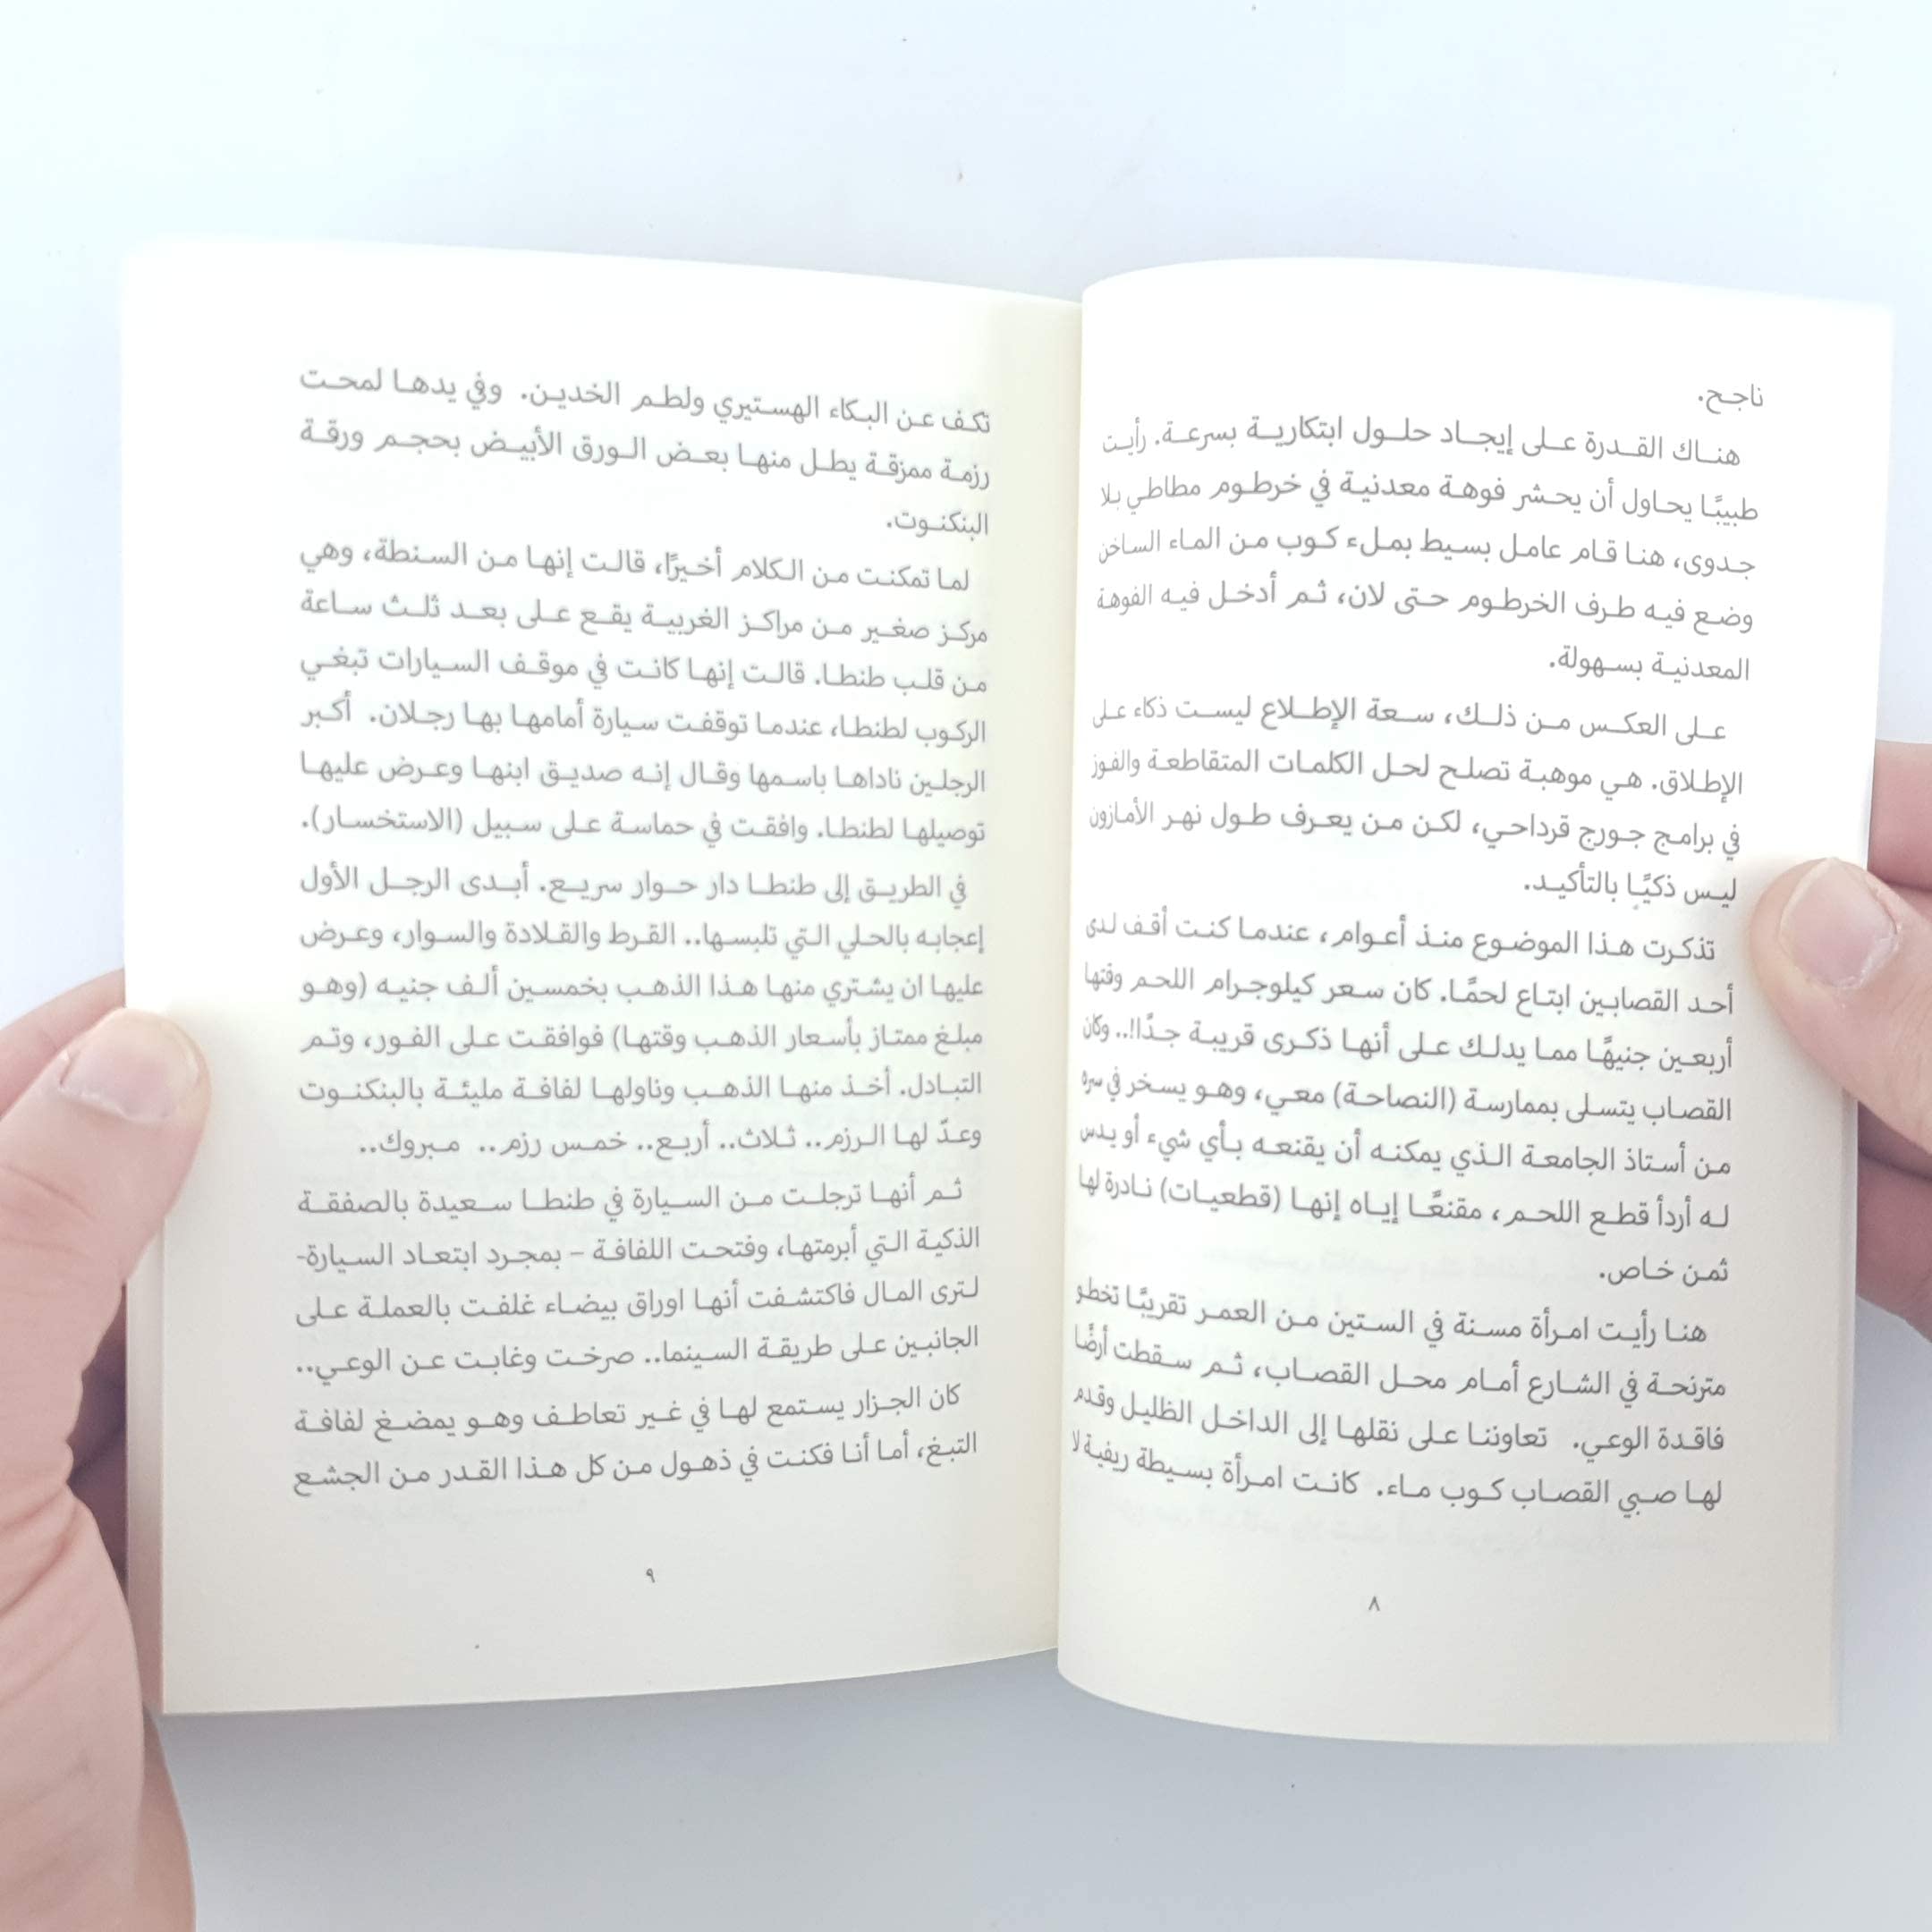 ناجح.
هناك القدرة على إيجاد حلول ابتكارية بسرعة. رأيت
طبيبًا يحاول أن يحشر فوهة معدنية في خرطوم مطاطي بلا
جدوى، هنا قام عامل بسيط بملء كوب من الماء الساخن
وضع فيه طرف الخرطوم حتى لان، ثم أدخل فيه الفوهة
المعدنية بسهولة.
على العكس من ذلك، سعة الإطلاع ليست ذكاء على
الإطلاق. هي موهبة تصلح لحل الكلمات المتقاطعة والفوز
في برامج جورج قرداحي، لكن من يعرف طول نهر الأمازون
ليس ذكيًا بالتأكيد.
تذكرت هذا الموضوع منذ أعوام، عندما كنت أقف لدى
أحد القصابين ابتاع لحمًا. كان سعر كيلوجرام اللحم وقتها
أربعين جنيهًا مما يدلك على أنها ذكرى قريبة جدًا!.. وكان
القصاب يتسلى بممارسة (النصاحة) معي، وهو يسخر في سره
من أستاذ الجامعة الذي يمكنه أن يقنعه بأي شيء أو يدس
له أردأ قطع اللحم، مقنعًا إياه إنها (قطعيات) نادرة لها
ثمن خاص.
هنا رأيت امرأة مسنة في الستين من العمر تقريبًا تخطو
مترنحة في الشارع أمام محل القصاب، ثم سقطت أرضًا
فاقدة الوعي. تعاوننا على نقلها إلى الداخل الظليل وقدم
لها صبي القصاب كوب ماء. كانت امرأة بسيطة ريفية لا
٨
تكف عن البكاء الهستيري ولطم الخدين. وفي يدها لمحت
رزمة ممزقة يطل منها بعض الورق الأبيض بحجم ورقة
البنكنوت.
لما تمكنت من الكلام أخيرًا، قالت إنها من السنطة، وهي
مركز صغير من مراكز الغربية يقع على بعد ثلث ساعة
من قلب طنطا. قالت إنها كانت في موقف السيارات تبغي
الركوب لطنطا، عندما توقفت سيارة أمامها بها رجلان. أكبر
الرجلين ناداها باسمها وقال إنه صديق ابنها وعرض عليها
توصيلها لطنطا. وافقت في حماسة على سبيل (الاستخسار).
في الطريق إلى طنطا دار حوار سريع. أبدى الرجل الأول
إعجابه بالحلي التي تلبسها.. القرط والقلادة والسوار، وعرض
عليها ان يشتري منها هذا الذهب بخمسين ألف جنيه (وهو
مبلغ ممتاز بأسعار الذهب وقتها) فوافقت على الفور، وتم
التبادل. أخذ منها الذهب وناولها لفافة مليئة بالبنكنوت
وعدّ لها الرزم.. ثلاث.. أربع.. خمس رزم.. مبروك..
ثم أنها ترجلت من السيارة في طنطا سعيدة بالصفقة
الذكية التي أبرمتها، وفتحت اللفافة – بمجرد ابتعاد السيارة-
لترى المال فاكتشفت أنها اوراق بيضاء غلفت بالعملة على
الجانبين على طريقة السينما.. صرخت وغابت عن الوعي..
كان الجزار يستمع لها في غير تعاطف وهو يمضغ لفافة
التبغ، أما أنا فكنت في ذهول من كل هذا القدر من الجشع
٩